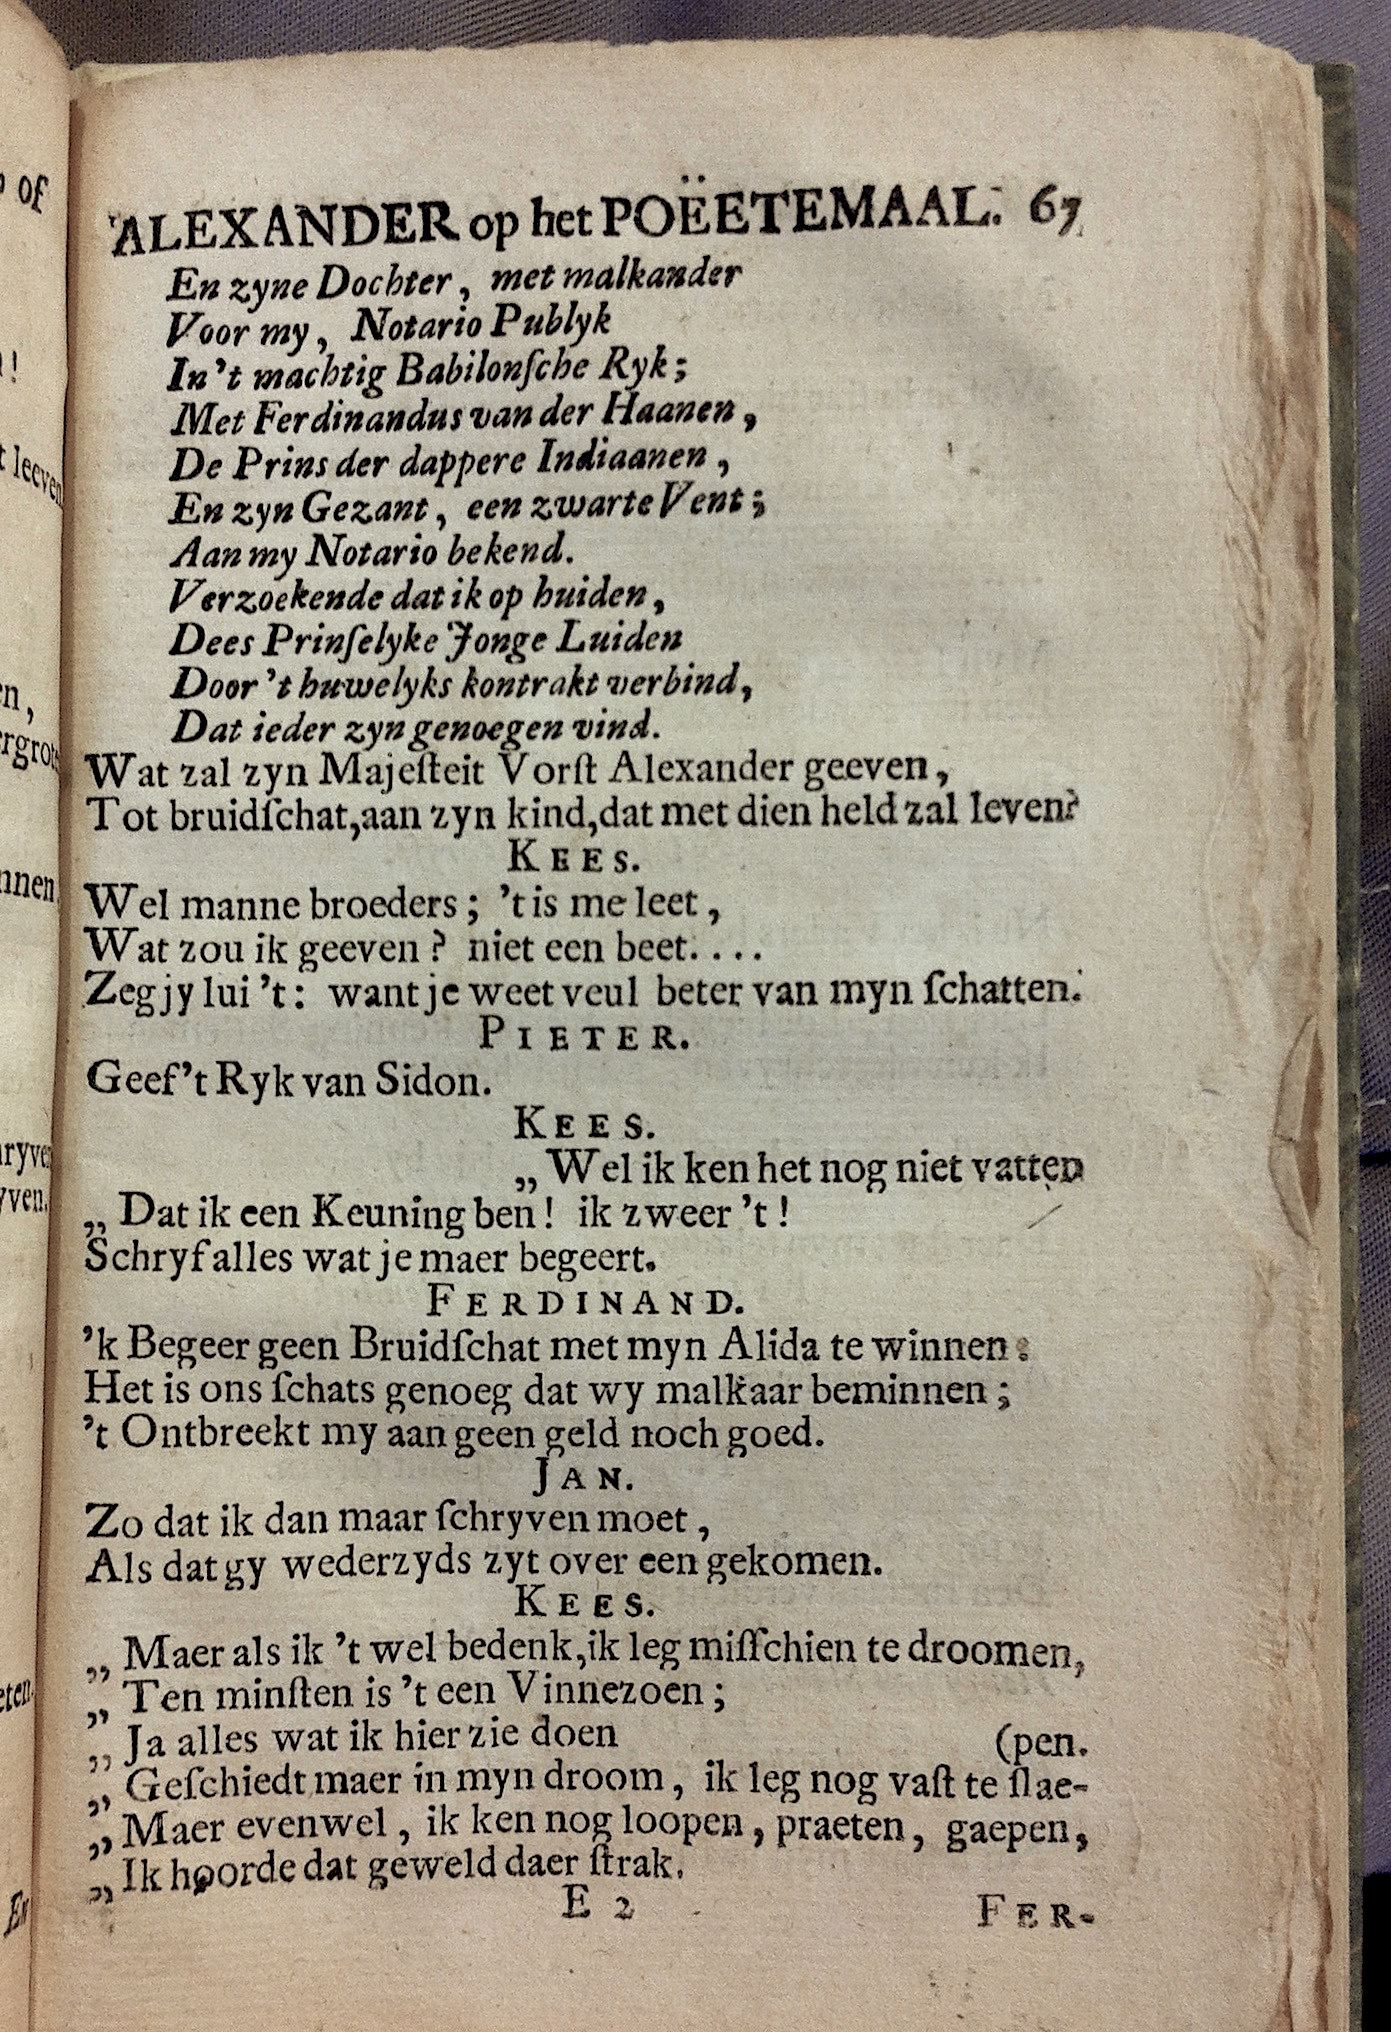 ALEXANDER op het POËETEMAAL. 67
En zyne Dochter, met malkander
Voor my, Notario Publyk
In 't machtig Babilonſche Ryk;
Met Ferdinandus van der Haanen,
De Prins der dappere Indiaanen,
En zyn Gezant, een zwarte Vent;
Aan my Notario bekend.
Verzoekende dat ik op huiden,
Dees Prinſelyke Jonge Luiden
Door 't huwelyks kontrakt verbind,
Dat ieder zyn genoegen vind.
Wat zal zyn Majeſteit Vorſt Alexander geeven,
Tot bruidſchat, aan zyn kind, dat met dien held zal leven?
KEES.
Wel manne broeders; 't is me leet,
Wat zou ik geeven? niet een beet....
Zeg jy lui 't: want je weet veul beter van myn ſchatten.
PIETER.
Geef 't Ryk van Sidon.
KEES.
„ Wel ik ken het nog niet vatten
„ Dat ik een Keuning ben! ik zweer 't!
Schryf alles wat je maer begeert.
FERDINAND.
'k Begeer geen Bruidſchat met myn Alida te winnen:
Het is ons ſchats genoeg dat wy malkaar beminnen;
't Ontbreekt my aan geen geld noch goed.
JAN.
Zo dat ik dan maar ſchryven moet,
Als dat gy wederzyds zyt over een gekomen.
KEES.
„ Maer als ik 't wel bedenk, ik leg miſſchien te droomen,
„ Ten minſten is 't een Vinnezoen;
„ Ja alles wat ik hier zie doen (pen.
„ Geſchiedt maer in myn droom, ik leg nog vaſt te ſlae-
„ Maer evenwel, ik ken nog loopen, praeten, gaepen,
„ Ik hoorde dat geweld daer ſtrak.
E 2 FER-